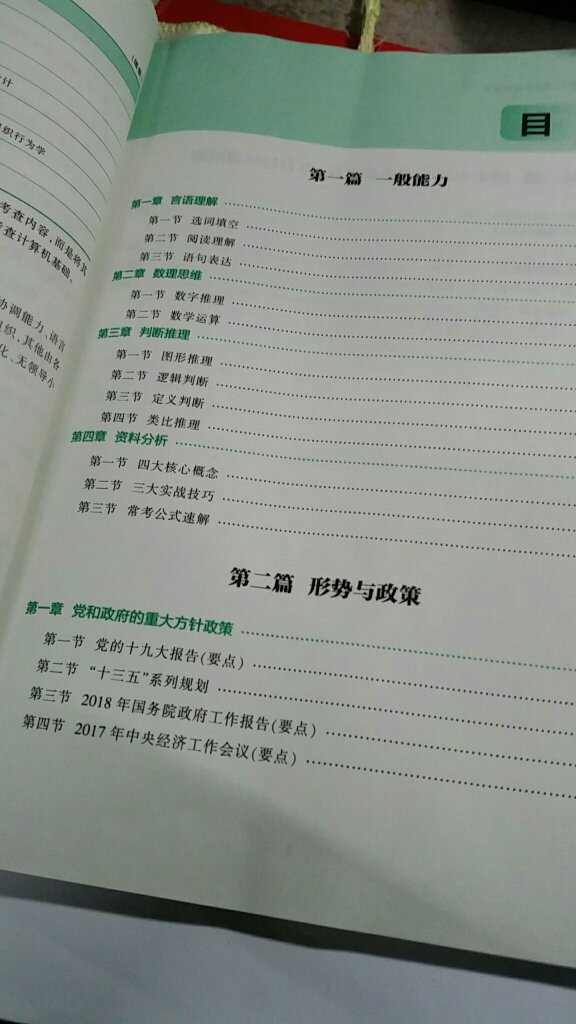 计
织行为学
考查内容,而是将其
查计算机基础、
协调能力、语言
组织,其他由各
化、无领导小
目
第一篇 一般能力
第一章 言语理解
第一节 选词填空
第二节 阅读理解
第三节 语句表达
第二章 数理思维
第一节 数字推理
第二节 数学运算
第三章 判断推理
第一节 图形推理
第二节 逻辑判断
第三节 定义判断
第四节 类比推理
第四章 资料分析
第一节 四大核心概念
第二节 三大实战技巧
第三节 常考公式速解
第二篇 形势与政策
第一章 党和政府的重大方针政策
第一节 党的十九大报告(要点)
第二节 “十三五”系列规划
第三节 2018年国务院政府工作报告(要点)
第四节 2017年中央经济工作会议(要点)